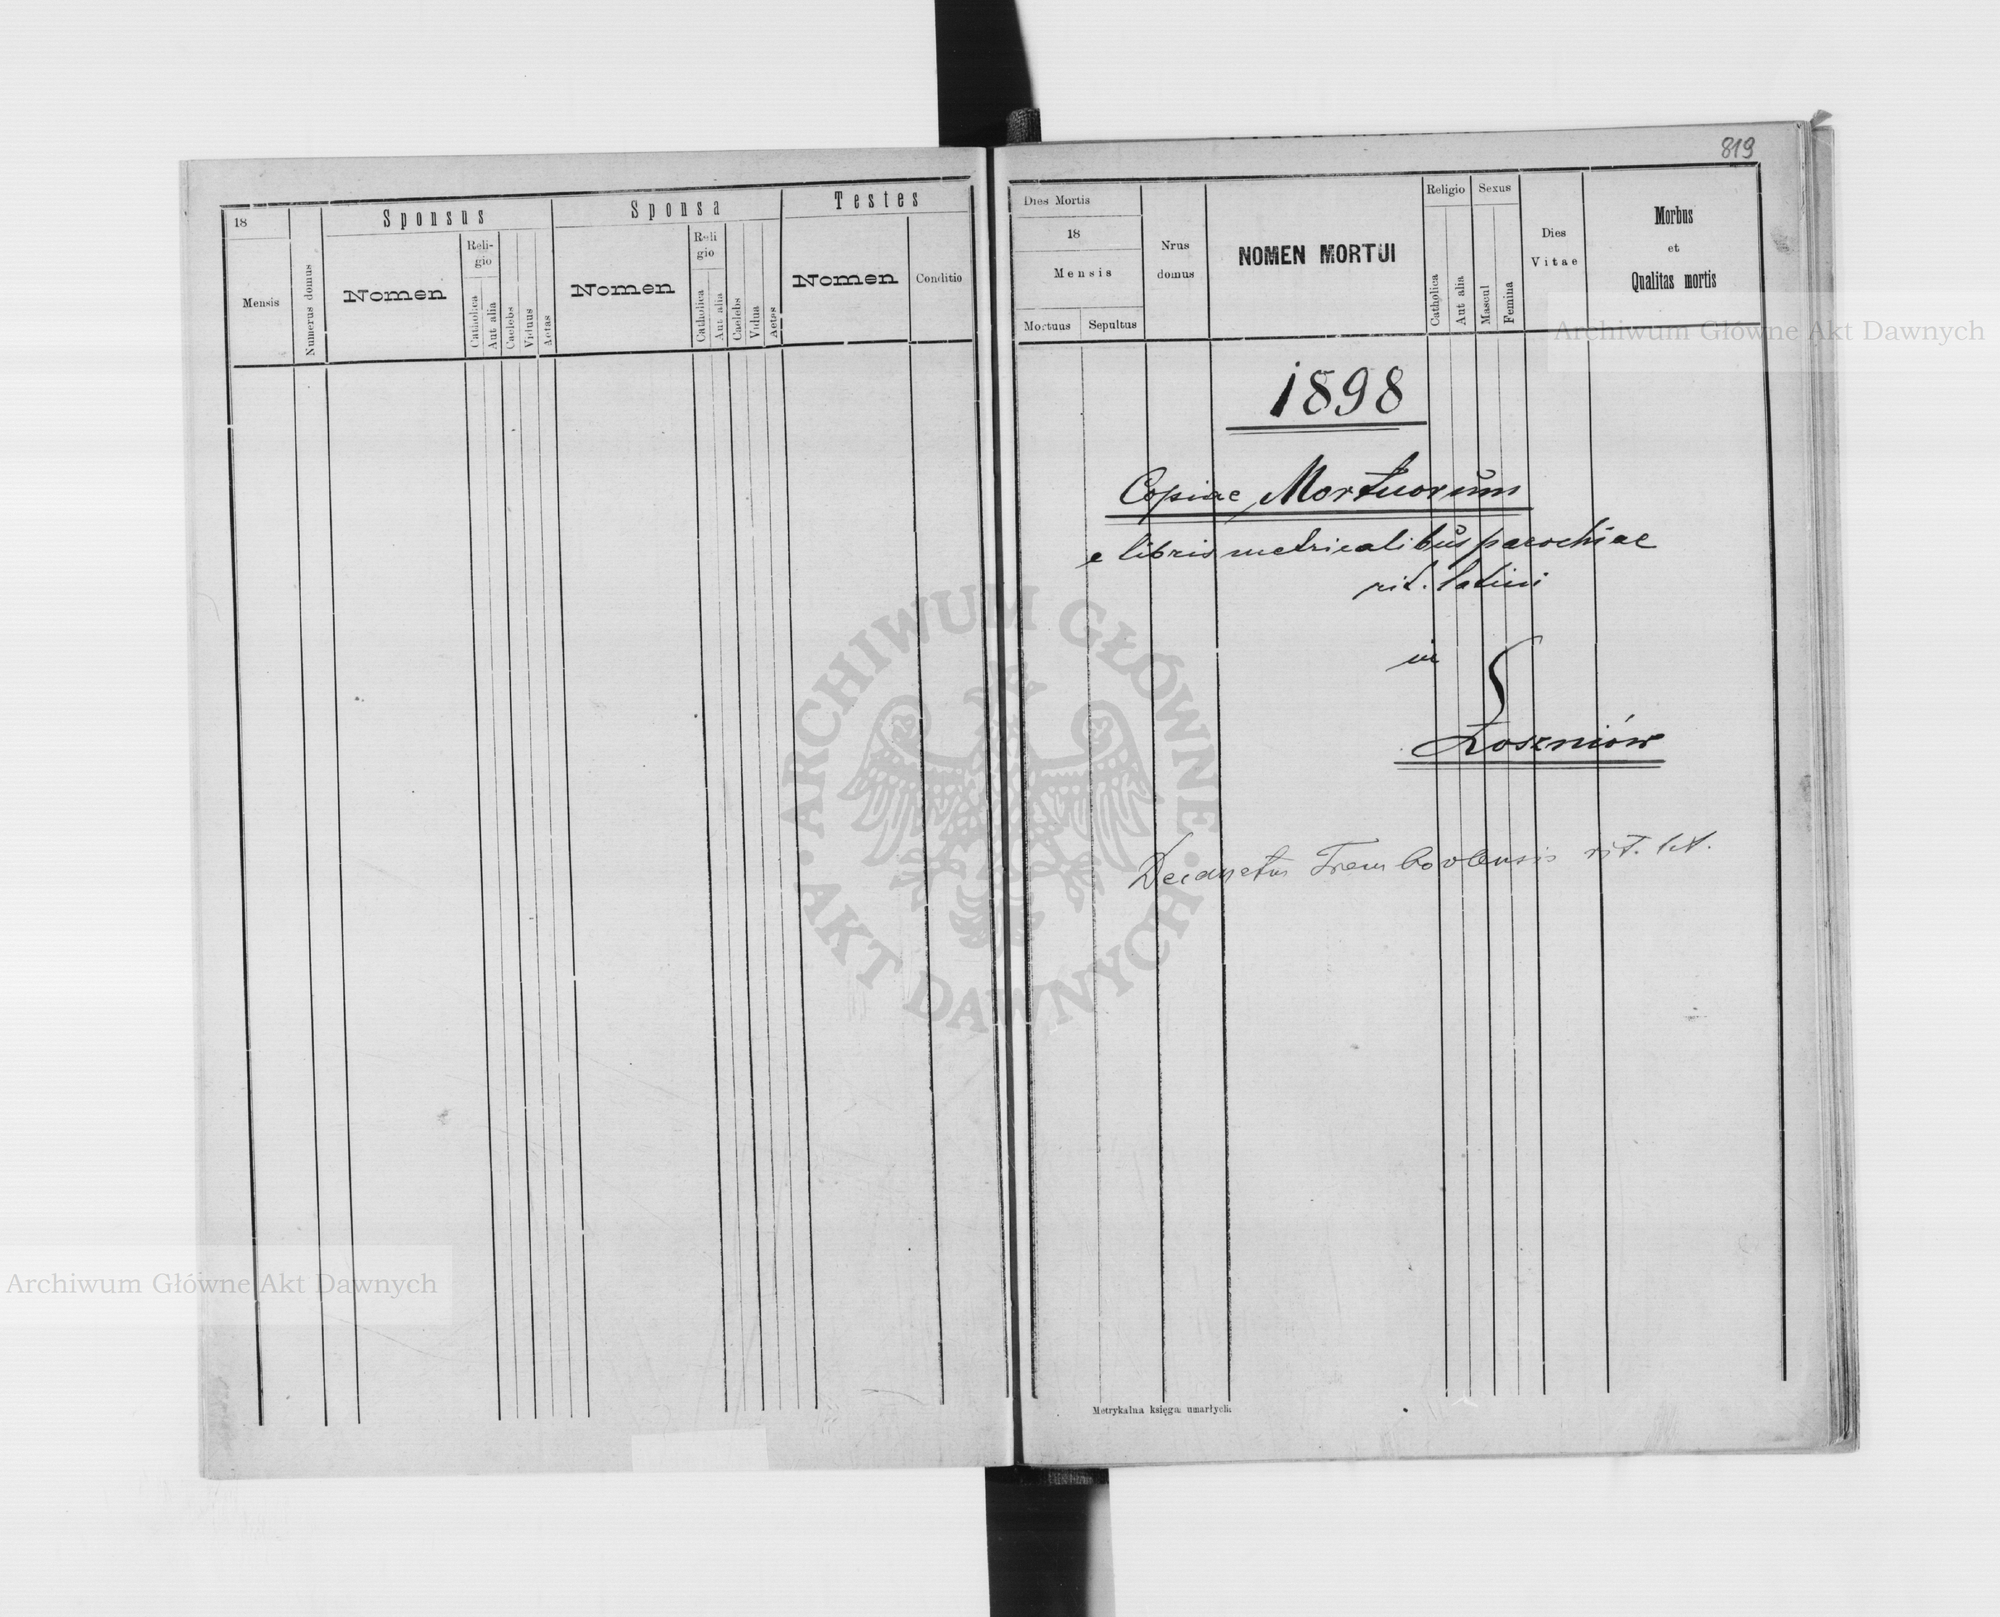 819
18
Mensis
Numerus domus
Sponsus
Nomen
Reli-
gio
Catholica
Aut alia
Caelebs
Viduus
Aetas
Sponsa
Nomen
Reli
gio
Catholica
Aut alia
Caelebs
Vidua
Aetas
Testes
Nomen
Conditio
Dies Mortis
18
Mensis
Mortuus
Sepultus
Nrus
domus
NOMEN MORTUI
Religio
Catholica
Aut alia
Sexus
Mascul
Femina
Dies
Vitae
Morbus
et
Qualitas mortis
1898
Copiae Mortuorum
e libris metricalibus parochiae
rit. latini
in
Łoszniów
Decanatus Trembovlensis rit. lat.
Metrykalna księga umarłych
Archiwum Główne Akt Dawnych
ARCHIWUM GŁÓWNE · AKT DAWNYCH ·
Archiwum Główne Akt Dawnych